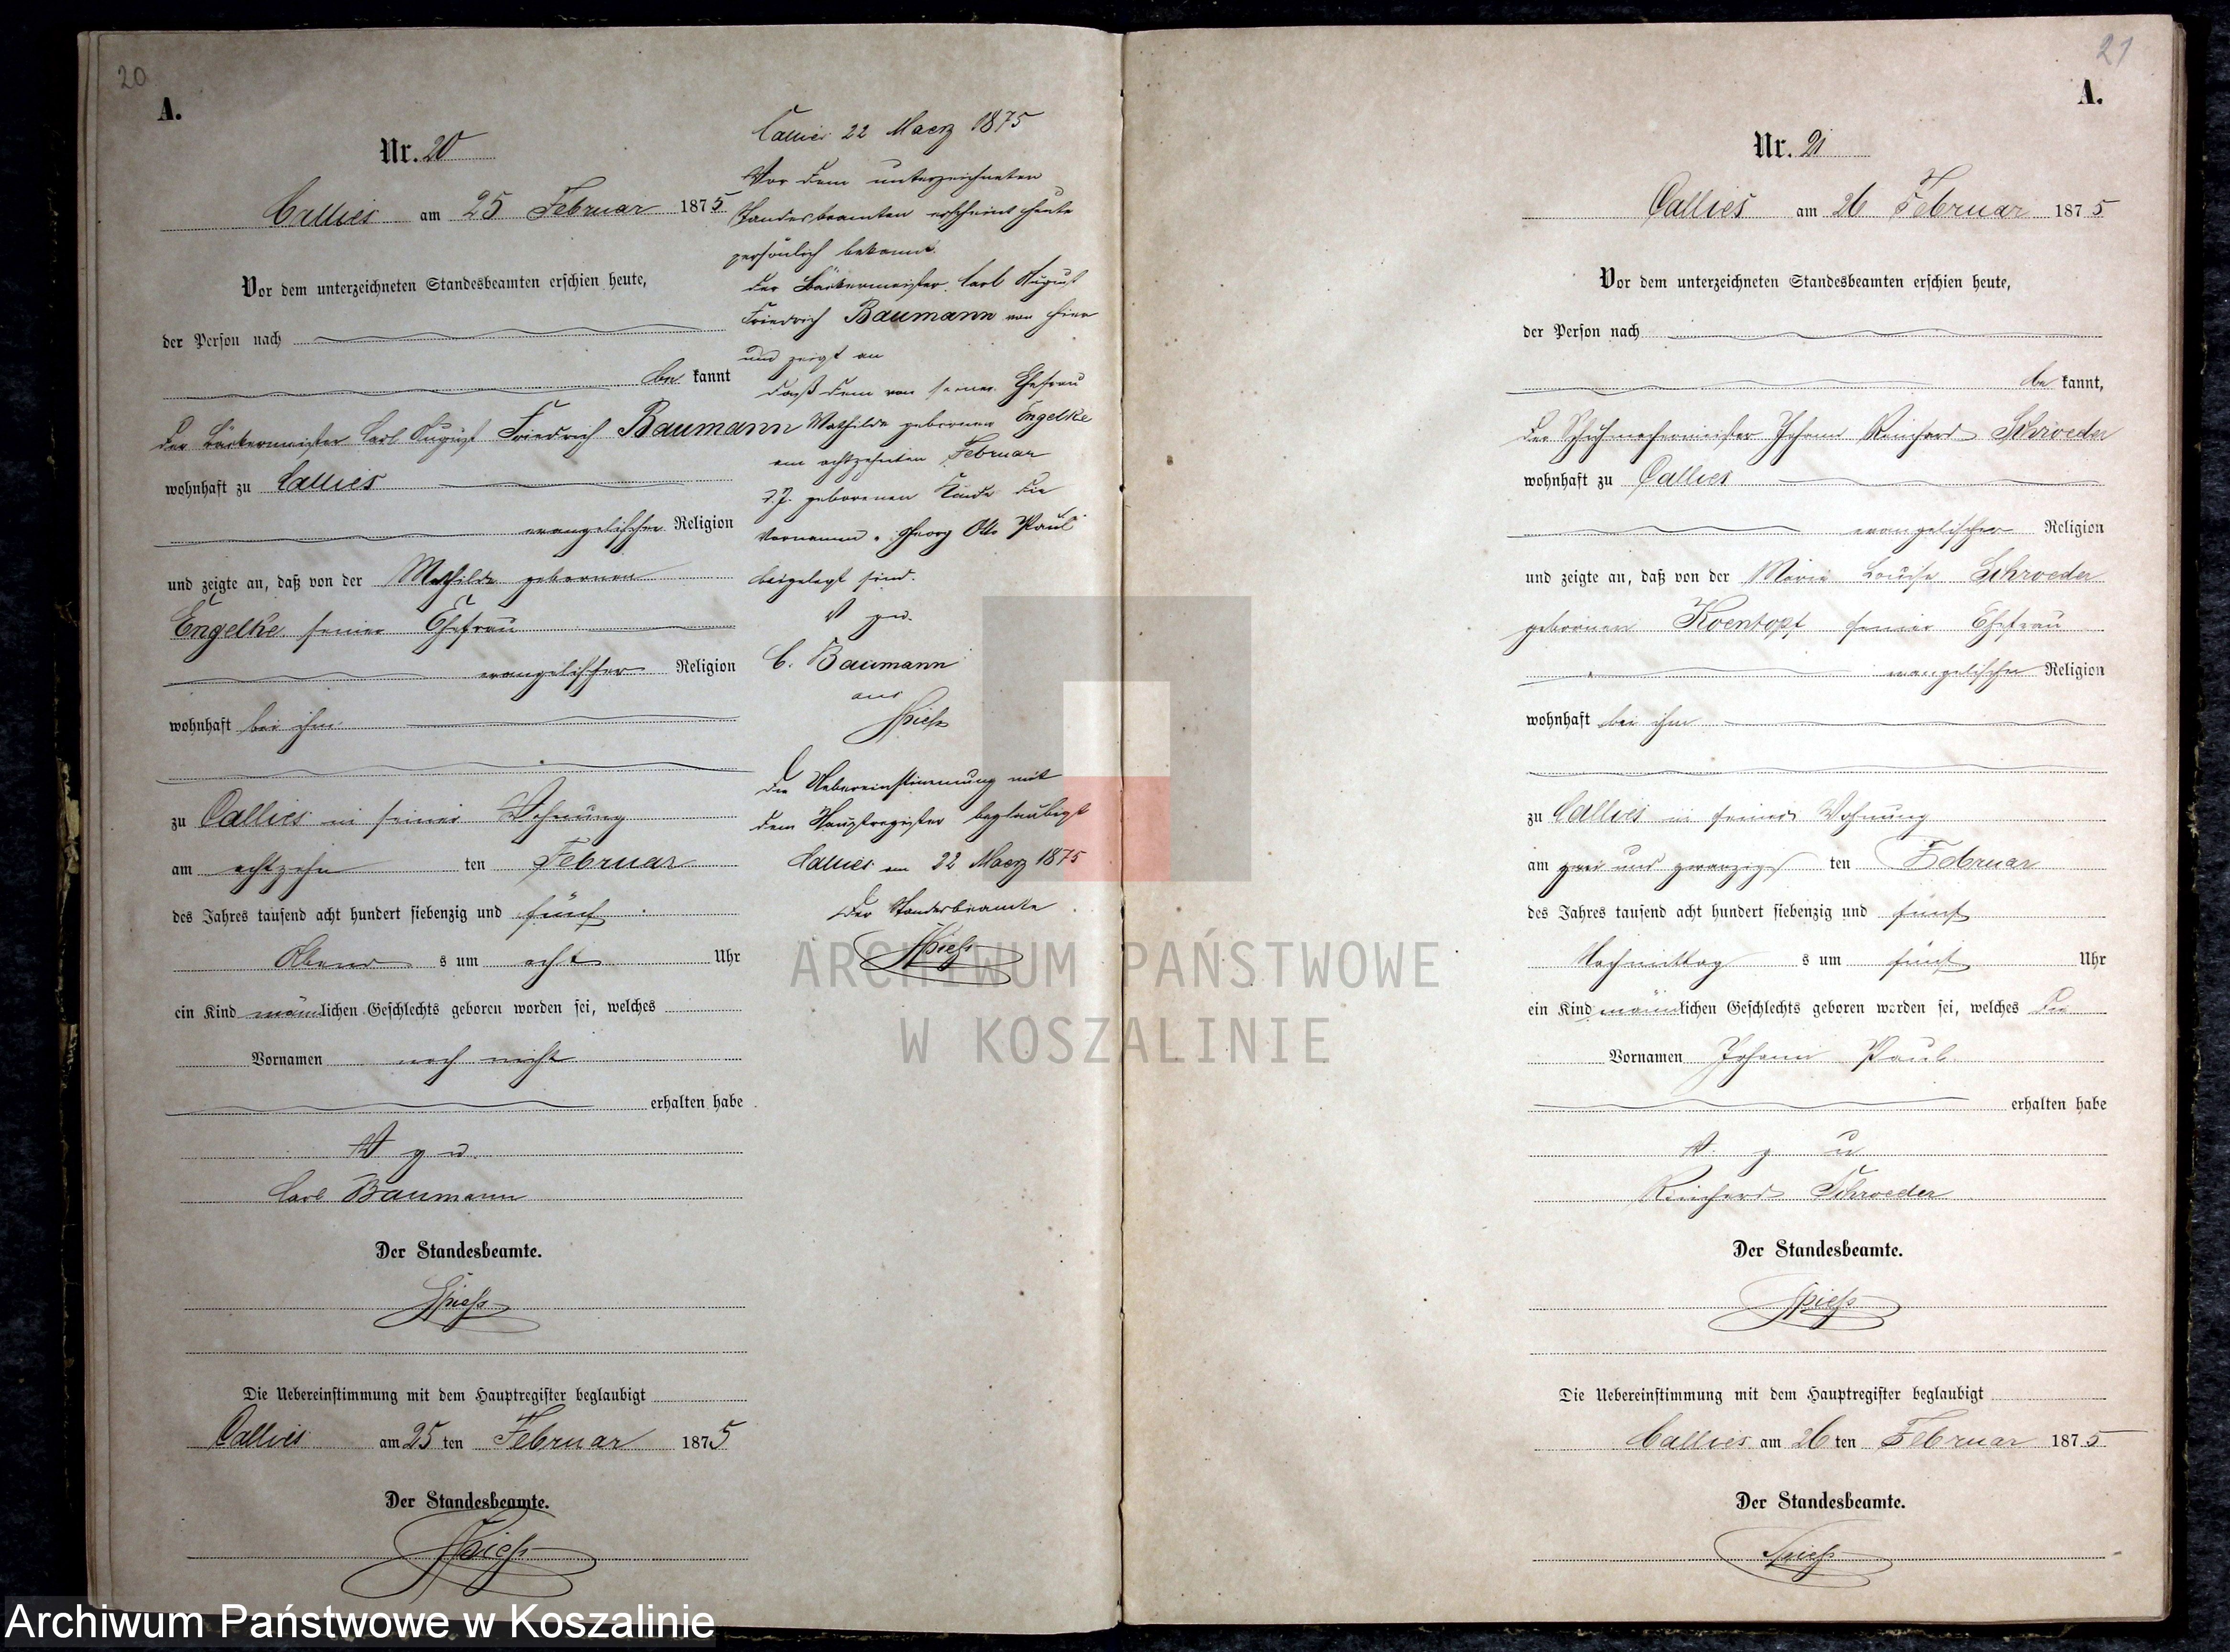 20
A.
Nr. 20
Callies am 25 Februar 1875
Vor dem unterzeichneten Standesbeamten erschien heute,
der Person nach
be kannt
der Bäckermeister Carl August Friedrich Baumann
wohnhaft zu Callies
evangelischer Religion
und zeigte an, daß von der Mathilde geborenen
Engelke seiner Ehefrau
evangelischer Religion
wohnhaft bei ihm
zu Callies in seiner Wohnung
am achtzehn ten Februar
des Jahres tausend acht hundert siebenzig und fünf
Abend s um acht Uhr
ein Kind männlichen Geschlechts geboren worden sei, welches
Vornamen noch nicht
erhalten habe
V g u.
Carl Baumann
Der Standesbeamte.
Spieß
Die Uebereinstimmung mit dem Hauptregister beglaubigt
Callies am 25 ten Februar 1875
Der Standesbeamte.
Spieß
Callies 22 Maerz 1875
Vor dem unterzeichneten
Standesbeamten erscheint heute
persönlich bekannt
der Bäckermeister Carl August
Friedrich Baumann von hier
und zeigt an
daß dem von seiner Ehefrau
Mathilde geborenen Engelke
am achtzehnten Februar
d. J. geborenen Kinde die
Vornamen Georg Otto Paul
beigelegt sind.
V gu.
C. Baumann
Spieß
Die Uebereinstimmung mit
dem Hauptregister beglaubigt
Callies am 22 Maerz 1875
Der Standesbeamte
Spieß
21
A.
Nr. 21
Callies am 26 Februar 1875
Vor dem unterzeichneten Standesbeamten erschien heute,
der Person nach
be kannt,
der Schuhmachermeister Johann Reinhard Schroeder
wohnhaft zu Callies
evangelischer Religion
und zeigte an, daß von der Marie Louise Schroeder
geborenen Koentopf seiner Ehefrau
evangelischer Religion
wohnhaft bei ihm
zu Callies in seiner Wohnung
am zwei und zwanzigs ten Februar
des Jahres tausend acht hundert siebenzig und fünf
Nachmittag s um fünf Uhr
ein Kind männlichen Geschlechts geboren worden sei, welches die
Vornamen Johann Paul
erhalten habe
V. g u
Reinhard Schroeder
Der Standesbeamte.
Spieß
Die Uebereinstimmung mit dem Hauptregister beglaubigt
Callies am 26 ten Februar 1875
Der Standesbeamte.
Spieß
ARCHIWUM PAŃSTWOWE
W KOSZALINIE
Archiwum Państwowe w Koszalinie